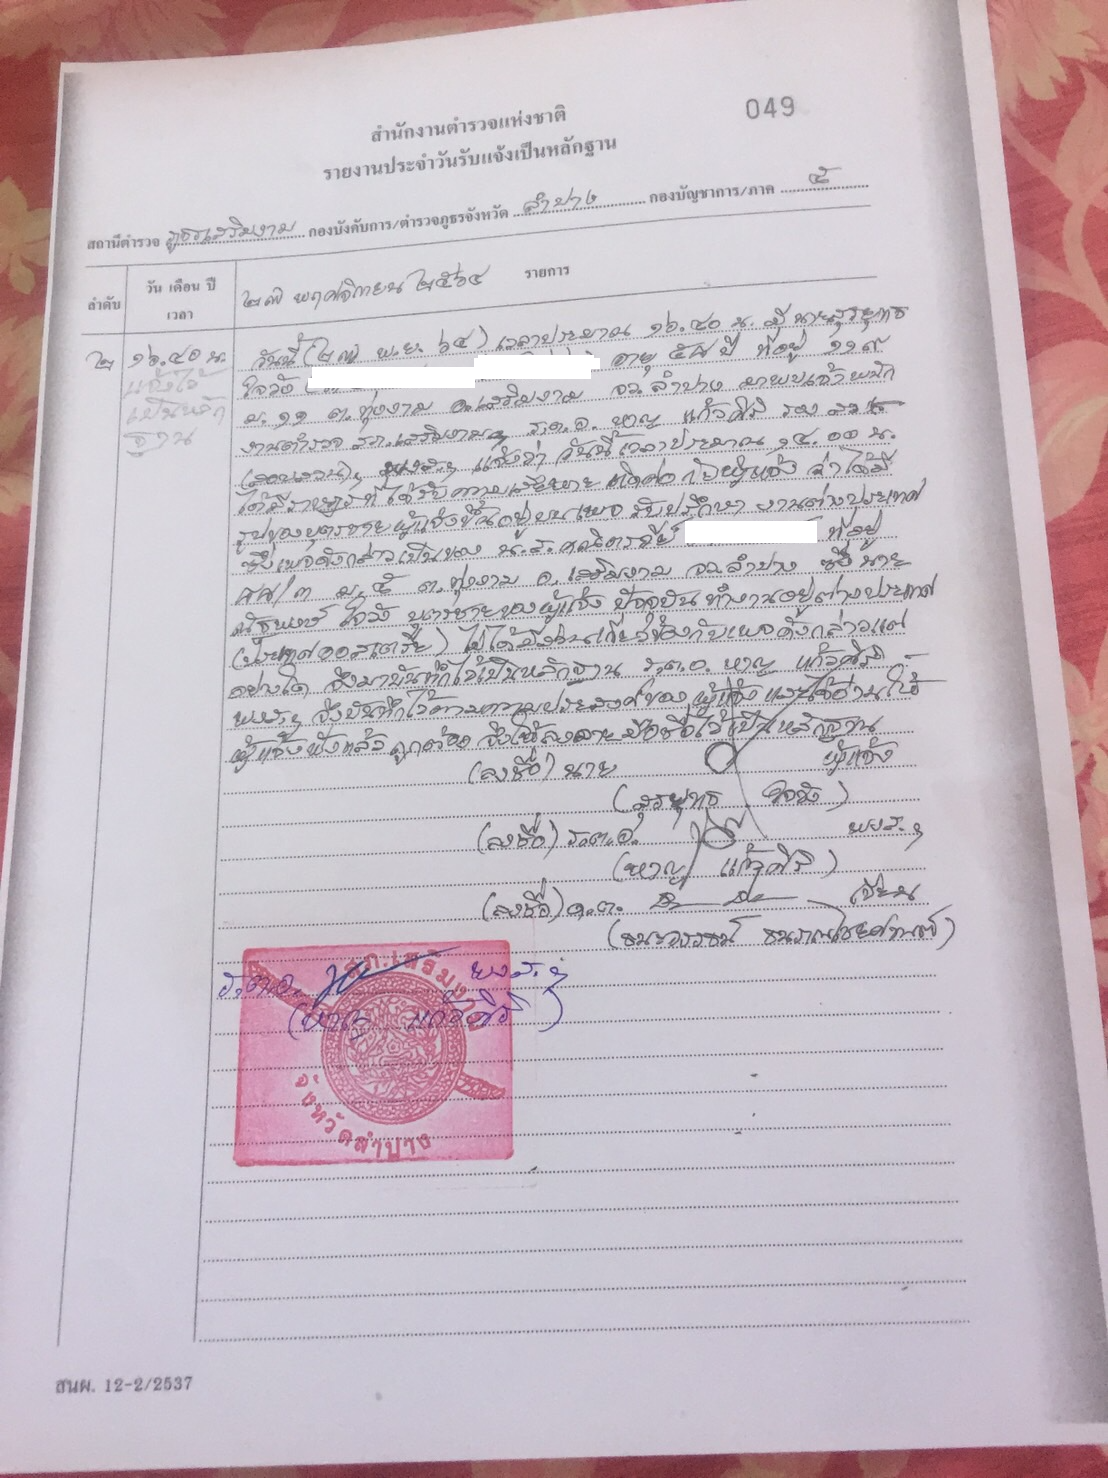 049
สำนักงานตำรวจแห่งชาติ
รายงานประจำวันรับแจ้งเป็นหลักฐาน
สถานีตำรวจ ภูธรเสริมงาม กองบังคับการ/ตำรวจภูธรจังหวัด ลำปาง กองบัญชาการ/ภาค ๕
ลำดับ วัน เดือน ปี เวลา ๒๗ พฤศจิกายน ๒๕๖๔ รายการ
๒ ๑๖.๔๐ น. วันนี้ (๒๗ พ.ย. ๖๔) เวลาประมาณ ๑๖.๔๐ น. มี นายสุรยุทธ
แจ้งไว้ ใจวัง อายุ ๕๘ ปี ที่อยู่ ๑๑๙
เป็นหลัก ม.๑๑ ต.ทุ่งงาม อ.เสริมงาม จว.ลำปาง มาพบเจ้าพนัก
ฐาน งานตำรวจ สภ.เสริมงามฯ ร.ต.อ. หาญ แก้วศิริ รอง สว.
(สอบสวน)ฯ แจ้งว่า วันนี้เวลาประมาณ ๑๔.๐๐ น.
ได้มีราษฎรที่ได้รับความเสียหาย ติดต่อกับผู้แจ้ง ว่าได้มี
รูปของบุตรชายผู้แจ้งขึ้นอยู่บนเพจ รับปรึกษา งานต่างประเทศ
ซึ่งเพจดังกล่าวเป็นของ น.ส. ที่อยู่
ม.๕ ต.ทุ่งงาม อ.เสริมงาม จว.ลำปาง ซึ่ง นาย
ณัฐพงษ์ ใจวัง บุตรชายของผู้แจ้ง ปัจจุบันทำงานอยู่ต่างประเทศ
(ประเทศออสเตรีย) ไม่ได้มีส่วนเกี่ยวข้องกับเพจดังกล่าวแต่
อย่างใด จึงมาบันทึกไว้เป็นหลักฐาน ร.ต.อ. หาญ แก้วศิริ
พงส.ฯ จึงบันทึกไว้ตามความประสงค์ของ ผู้แจ้ง และได้อ่านให้
ผู้แจ้งฟังแล้ว ถูกต้อง จึงให้ลงลายมือชื่อไว้เป็นหลักฐาน
(ลงชื่อ) นาย ผู้แจ้ง
(สุรยุทธ ใจวัง)
(ลงชื่อ) ร.ต.อ. พงส.ฯ
(หาญ แก้วศิริ)
(ลงชื่อ) ด.ต. เขียน
ร.ต.อ. พงส.ฯ
(หาญ แก้วศิริ)
สภ.เสริมงาม
จังหวัดลำปาง
สนผ. 12-2/2537